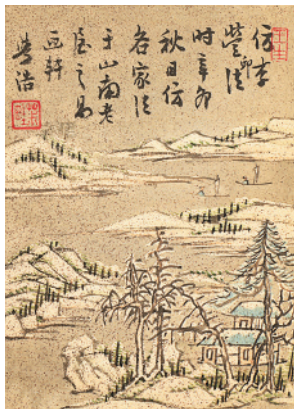 仿李
營邱法
时辛卯
秋日仿
各家法
于山南老
屋之易
轩
浩